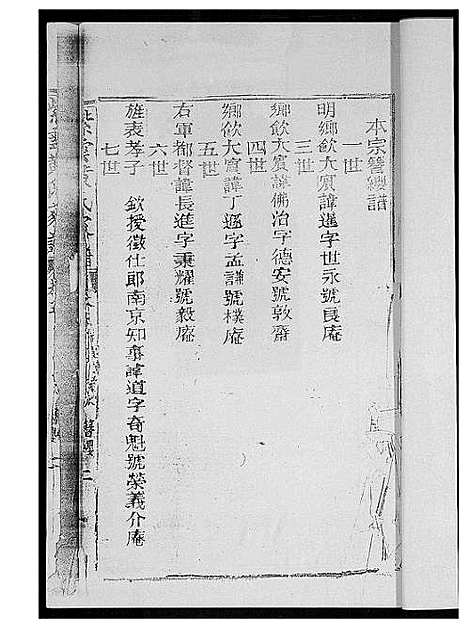 本宗簪纓譜
一世
明鄉飲大賓諱暹字世永號良庵
三世
鄉飲大賓諱佛治字德安號敦齋
四世
鄉飲大賓諱丁遜字孟謙號樸庵
五世
右軍都督諱長進字秉耀號毅庵
六世
旌表孝子　欽授徵仕郎南京知事諱道字奇魁號榮義介庵
七世
簪纓